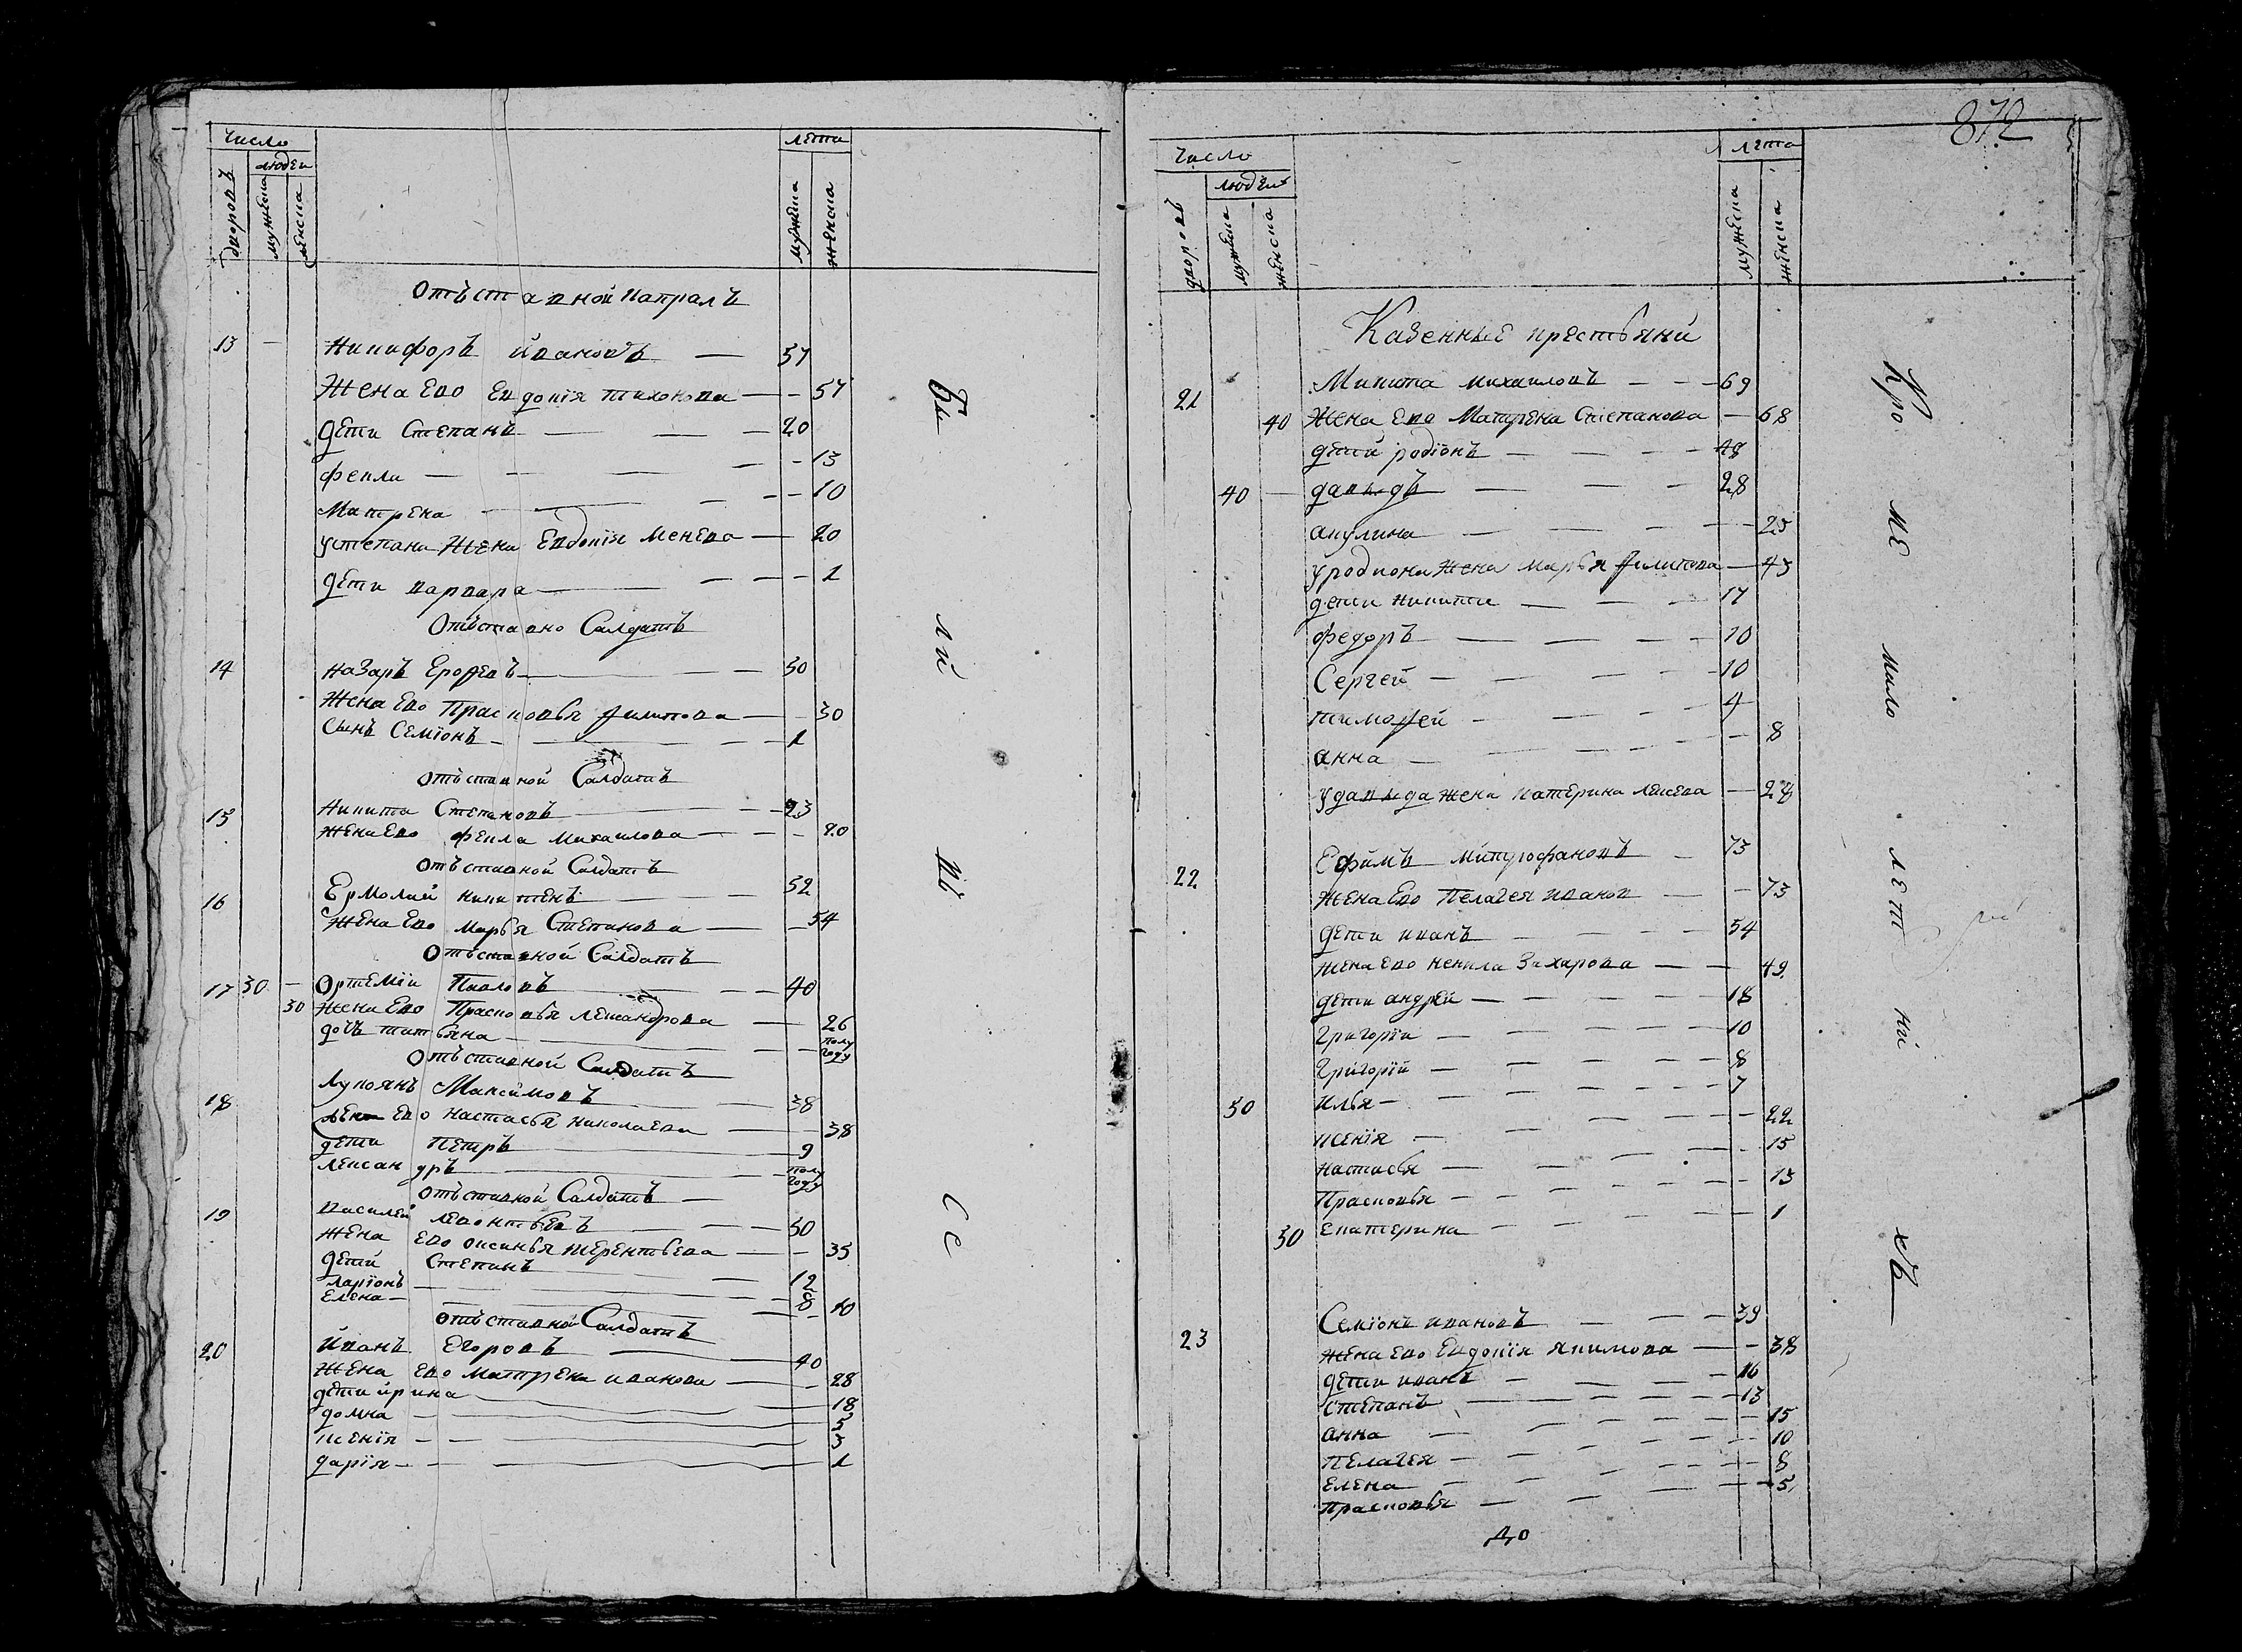 Число
людей
дворовъ
мужеска
женска
лета
мужеска
женска
Отъставной капралъ
13 Никифоръ Ивановъ 57
Жена Ево Евдокія Тихонова 57
Дети Степанъ 20
Фекла 13
Матрена 10
у Степана Жена Евдокія 20
Дети Варвара 1
Отъставно Салдатъ
14 Назаръ Ерофеевъ 30
Жена Ево Прасковья Филипова 30
Сынъ Семіонъ 1
Отъставной Салдатъ
15 Никита Степановъ 23
Жена Ево Фекла Михаилова 20
Отъставной Салдатъ
16 Ермолай Никитенъ 52
Жена Ево Марья Степанова 54
Отъставной Салдатъ
17 30 Ортеміи Павловъ 40
30 Жена Ево Прасковья Лександрова 26
дочь Татьяна полу году
Отъставной Салдатъ
18 Лукоянъ Максимовъ 38
Жена Ево Настасья Николаева 38
дети Петръ 9
Лександръ полу году
Отъставной Салдатъ
19 Василеи Левонтьевъ 30
Жена Ево Оксинья Терентьева 35
дети Степанъ 12
Ларіонъ 8
Елена 10
Отъставной Салдатъ
20 Иванъ Егоровъ 40
Жена Ево Матрена Иванова 28
дети Ирина 18
Домна 5
Ксенія 3
Дарія 1
Вы
лй
Въ
Се
872
Число
людей
дворовъ
мужеска
женска
лета
мужеска
женска
Казенные крестьяни
21 Микита Михаиловъ 69
40 Жена Ево Матрена Степанова 68
дети Родіонъ 48
40 Давыдъ 28
Акулина 25
у Родиона Жена Марья Филипова 43
дети Никита 17
Федоръ 10
Сергей 10
Тимофей 4
Анна 8
у Давыда Жена Катерина Лексева 28
22 Ефимъ Митрофановъ 73
Жена Ево Пелагея Иванов 73
Дети Иванъ 54
Жена Ево Ненила Захарова 49
Дети Андрей 18
Григорій 10
Григорій 8
50 Илья 7
Ксенія 22
Настасья 15
Прасковья 13
50 Екатерина 1
23 Семіонъ Ивановъ 39
Жена Ево Евдокія Якимова 38
Дети Иванъ 16
Степанъ 13
Анна 15
Пелагея 10
Елена 8
Прасковья 5
До
Кро
ме
мало
лет
ни
хъ